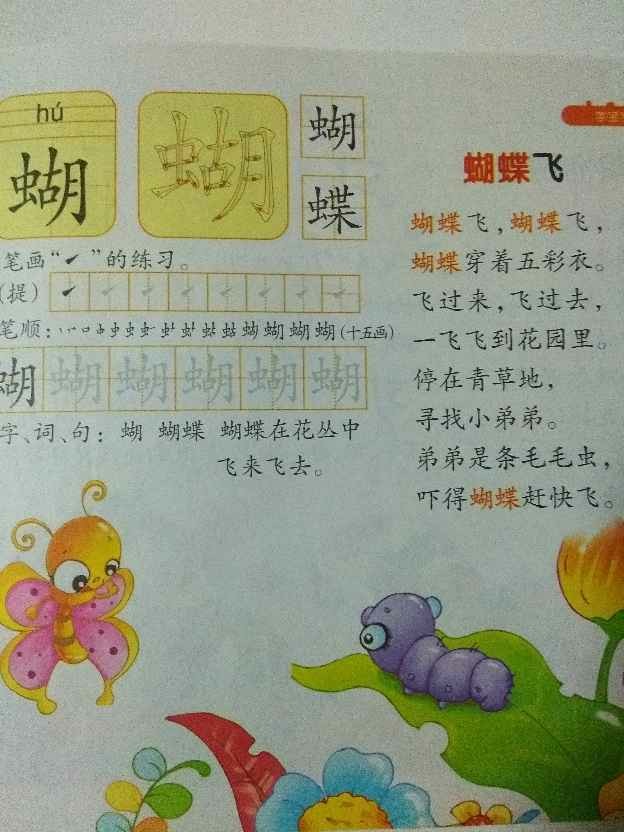 hú
蝴
蝴
蝴
蝶
笔画“㇀”的练习。
(提)
笔顺:
(十五画)
蝴 蝴 蝴 蝴 蝴 蝴
字、词、句: 蝴 蝴蝶 蝴蝶在花丛中
飞来飞去。
蝴蝶飞
蝴蝶飞,蝴蝶飞,
蝴蝶穿着五彩衣。
飞过来,飞过去,
一飞飞到花园里。
停在青草地,
寻找小弟弟。
弟弟是条毛毛虫,
吓得蝴蝶赶快飞。